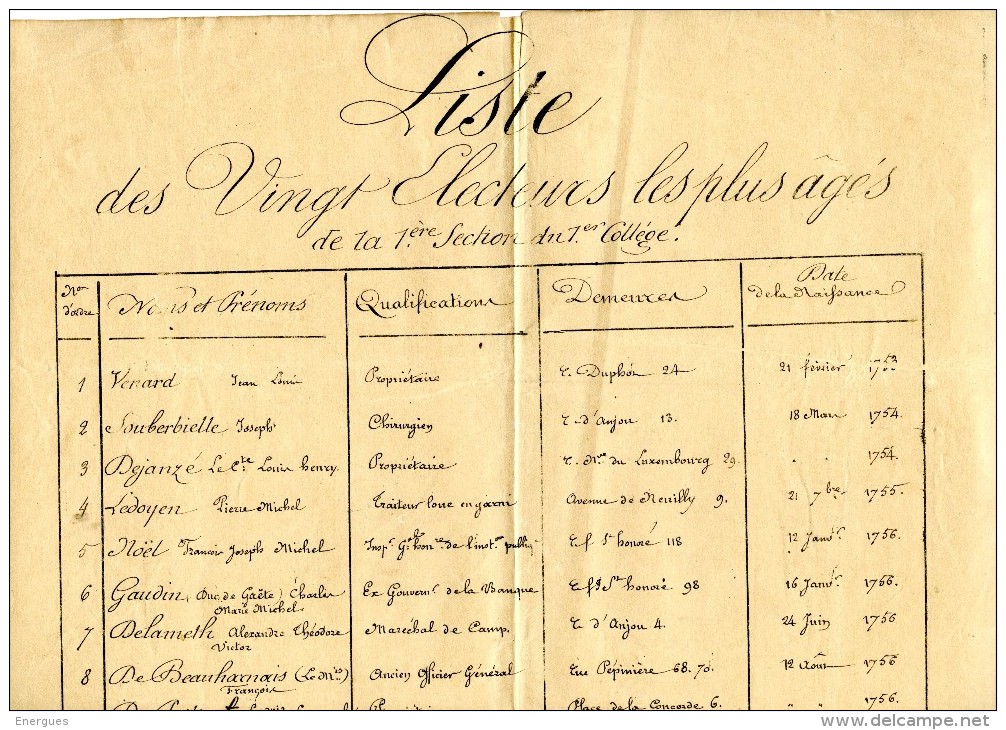 Liste
des Vingt Electeurs les plus âgés
de la 1.ère Section du 1.er Collége.
N.os d'ordre Noms et Prénoms Qualifications Demeures Date de la Naissance
1 Venard Jean Louis Propriétaire r. Duphôt 24 21 février
2 Souberbielle Joseph Chirurgien r. d'Anjou 13. 18 Mars 1754.
3 Dejanzé Le C.te Louis henry. Propriétaire r. N.ve du Luxembourg 29. " " 1754.
4 Ledoyen Pierre Michel Traiteur loue en garni Avenue de Neuilly 9. 21 7bre 1755.
5 Noël François Joseph Michel Insp.r G.al hon.re de l'inst.on publiq. r f S.t honoré 118 12 Janv.r 1756.
6 Gaudin (Duc de Gaëte) Charles Ex Gouvern.r de la Banque r f g S.t honoré 98 16 Janv.r 1756.
Marie Michel
7 Delameth Alexandre Théodore Maréchal de Camp. r. d'Anjou 4. 24 Juin 1756
Victor
8 De Beauharnais (Le M.is) Ancien Officier Général rue Pépinière 68. 70. 12 Août 1756
François
Place de la Concorde 6. " " 1756.
Energues
delcampe.net